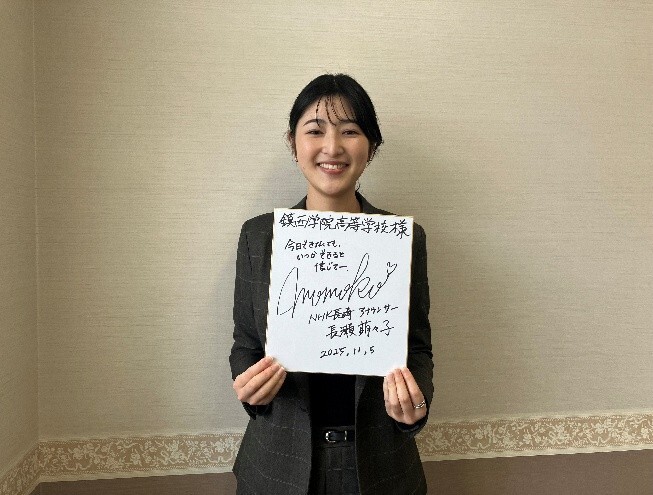 鎮西学院高等学校様
今日できなくても、
いつかできると
信じて―
momoko♡
NHK長崎 アナウンサー
長瀬萌々子
2025.11.5